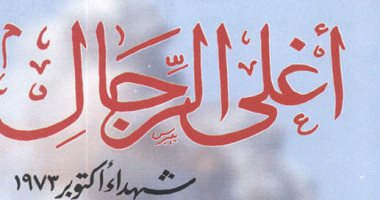 أغلى الرِّجَالِ
شهداء أكتوبر ١٩٧٣